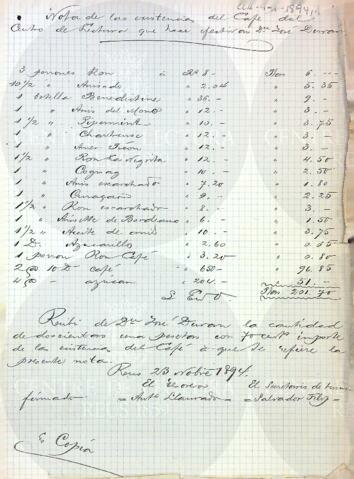 Nota de las existencias del Café del
Centro de Lectura que hace efectivas Dn José Duran
3 porrones Ron a Rs 8 - Ptas 6 -
10 1/2 " Anisado " 2.04 " 5.35
1 botella Benedictine " 36.- " 9.-
1 " Anis del Mono " 12.- " 3.-
1 1/2 " Pipermint " 10.- " 3.75
1 " Chartreuse " 12.- " 3.-
1 " " 12.- " 3.-
1 1/2 " Ron La Negrita " 12.- " 4.50
1 " Cognag " 10.- " 2.50
1 " Anis escarchado " 7.20 " 1.80
1 " Curaçao " 9.- " 2.25
1 1/2 " Ron escarchado " 8.- " 3.-
1 " Anisette de Bordeaux " 6.- " 1.50
1 1/2 " Aceite de anis " 10.- " 3.75
1 D. Azucarillos " 2.60 " 0.65
1 porron Ron Café " 3.20 " 0.80
2 @ 10 café " 650 - " 96.85
4 @ - azúcar " 204.- " 51.-
S. E. u O Ptas 201.70
Recibi de Dn José Duran la cantidad
de doscientas una pesetas con 70 cents importe
de las existencias del Café á que se refiere la
presente nota.
Reus 23 Nobre 1894.
El El Secretario
firmado = Antº Llauradó = Salvador
Es Copia